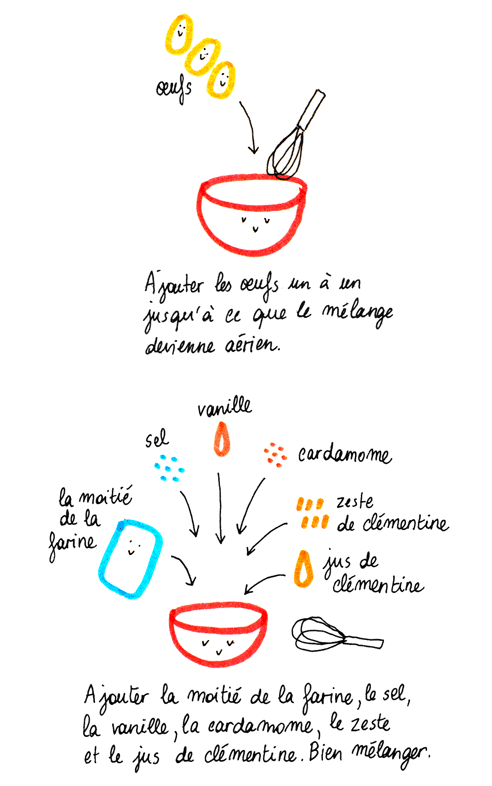 œufs
Ajouter les œufs un à un
jusqu'à ce que le mélange
devienne aérien.
vanille
sel
cardamome
la moitié
de la
farine
zeste
de clémentine
jus de
clémentine
Ajouter la moitié de la farine, le sel,
la vanille, la cardamome, le zeste
et le jus de clémentine. Bien mélanger.